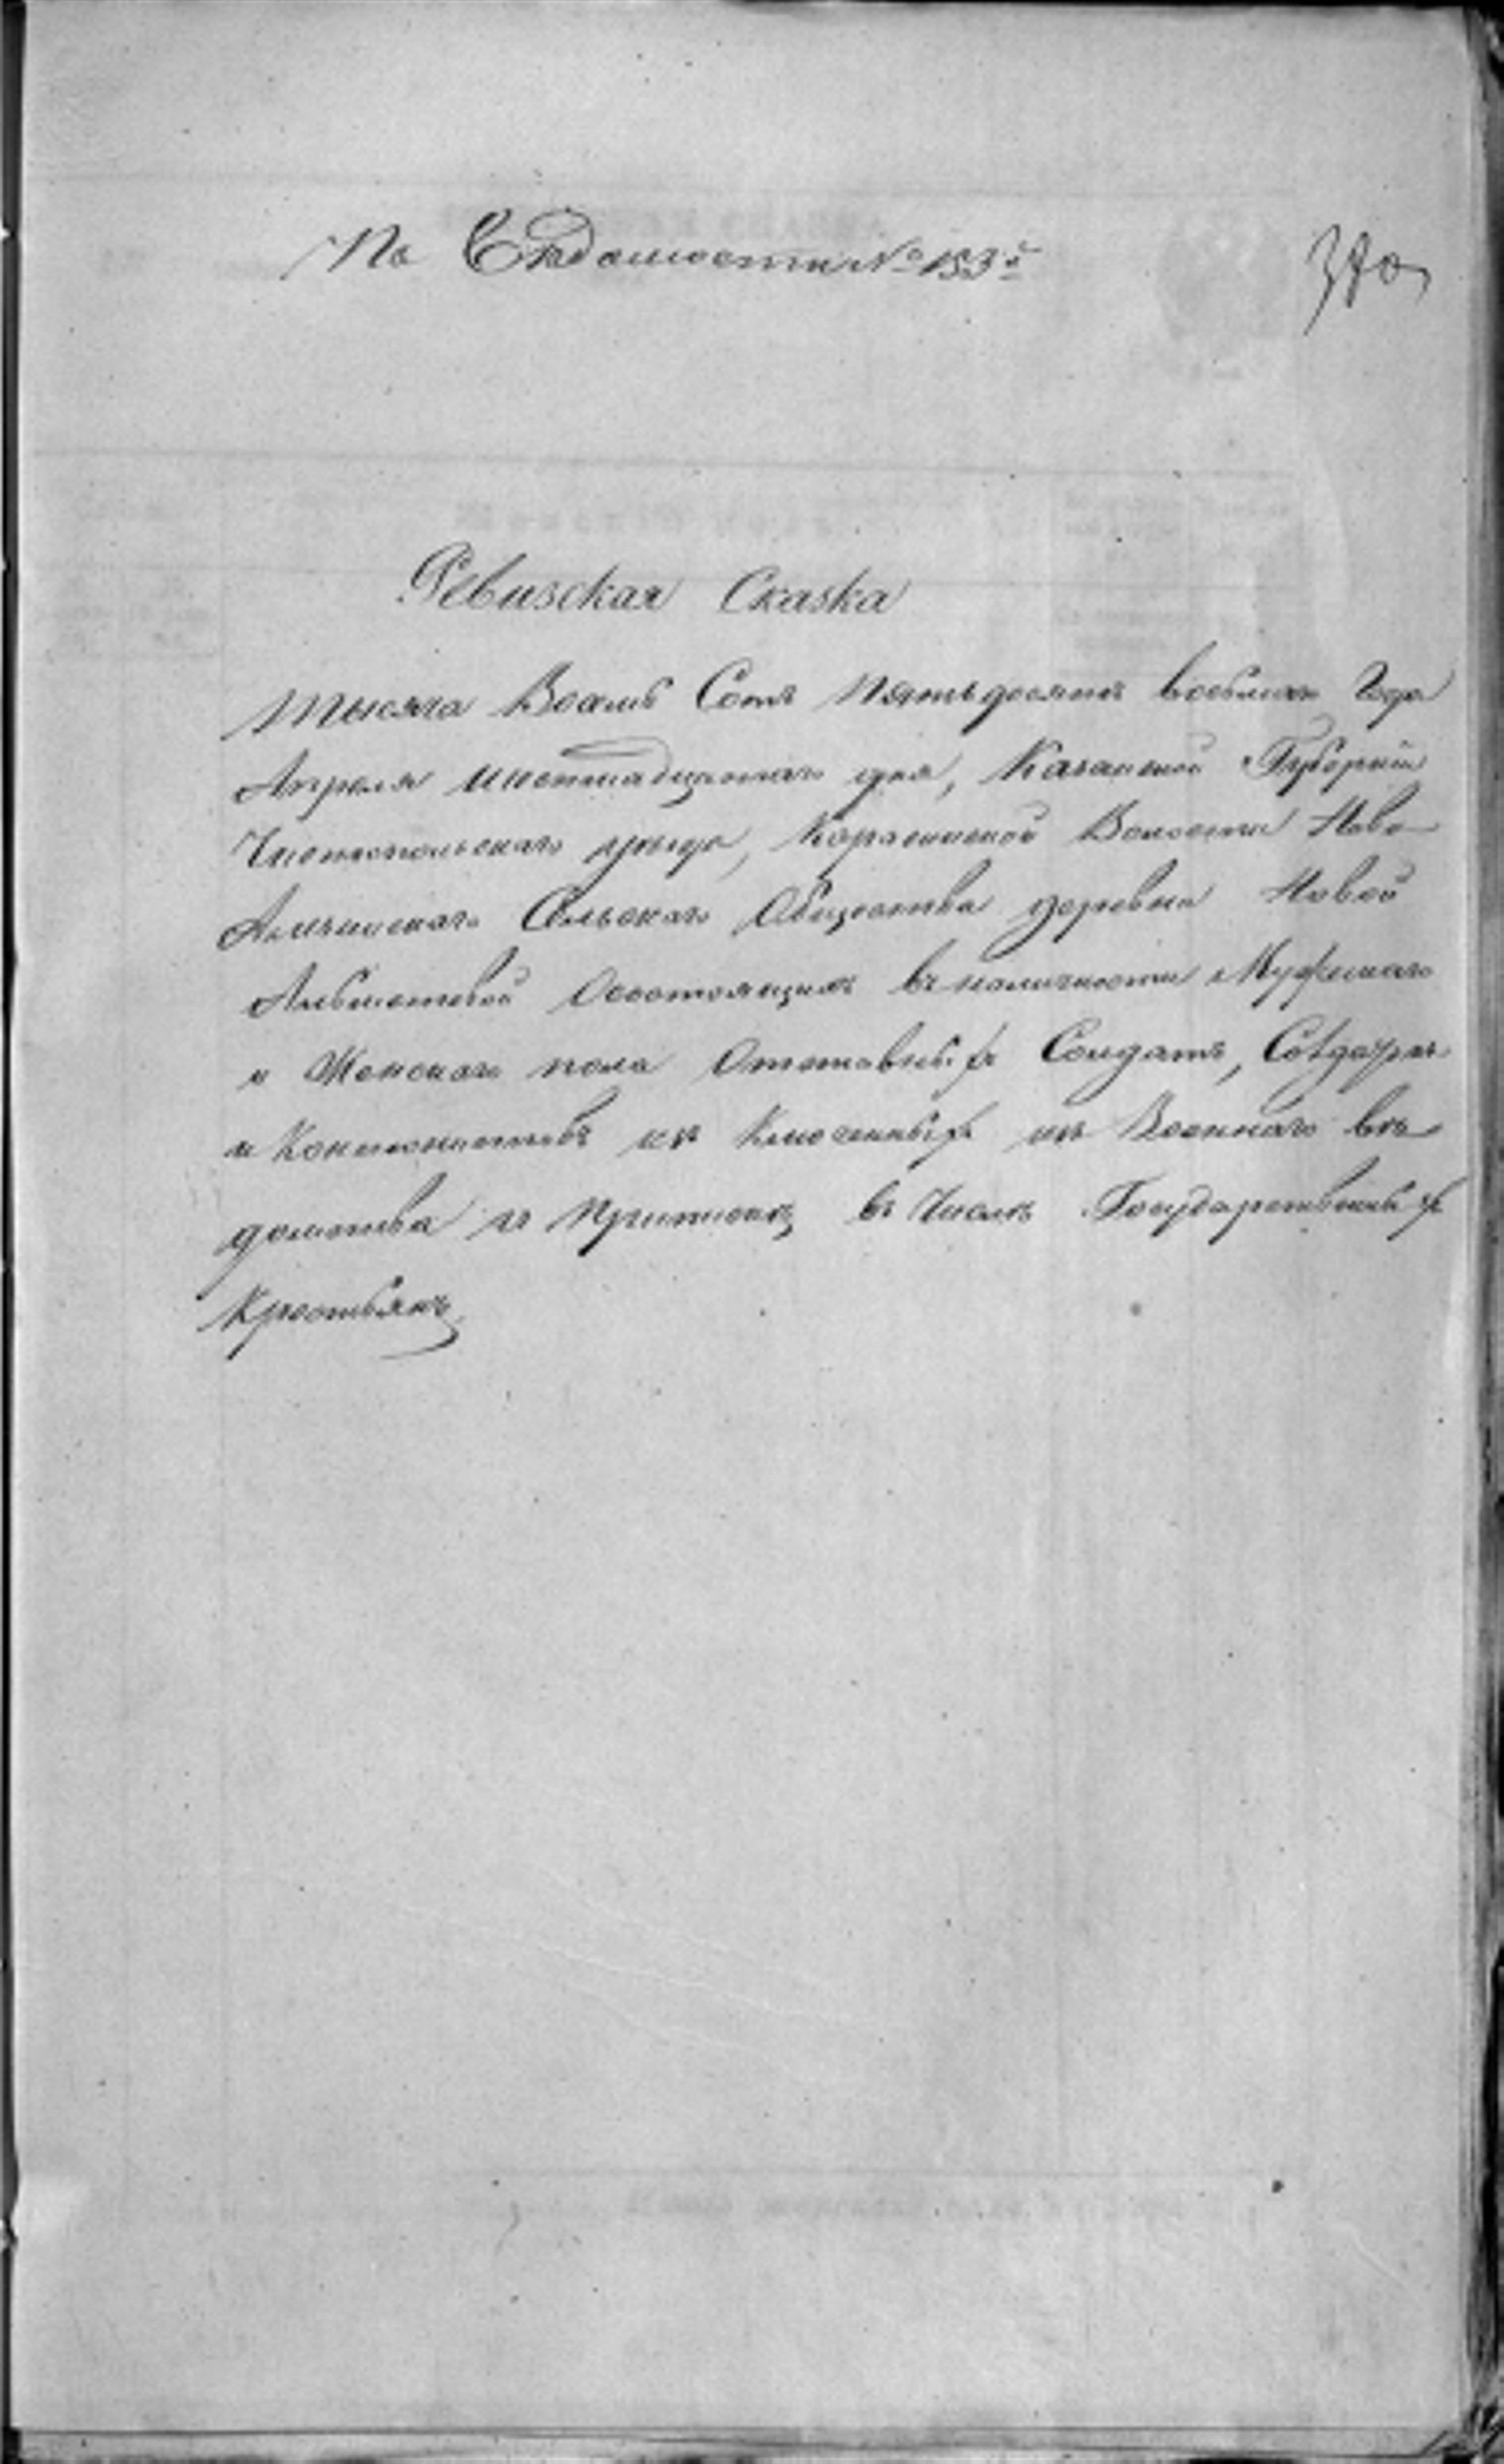 По Вѣдомости № 153й
370
Ревизская Сказка
Тысяча Восемь Сотъ Пятьдесятъ восьмаго Года
Апреля Шестнадцатаго дня, Казанской Губерніи
Чистопольскаго уезда, Волости Ново
Сельскаго Общества деревни Новой
Состоящимъ въ наличности Мужескаго
и Женскаго пола Отставныхъ Солдатъ, Солдатокъ
и Кантонистовъ изъ Военнаго вѣ
домства и въ Числѣ Государственныхъ
Крестьянъ